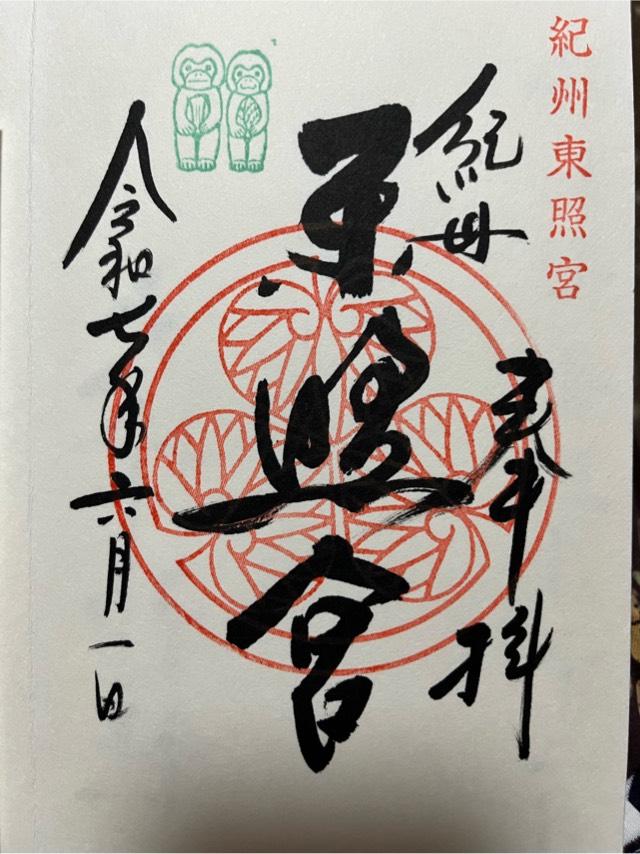 紀州東照宮
紀州
奉拝
東照宮
令和七年六月一日